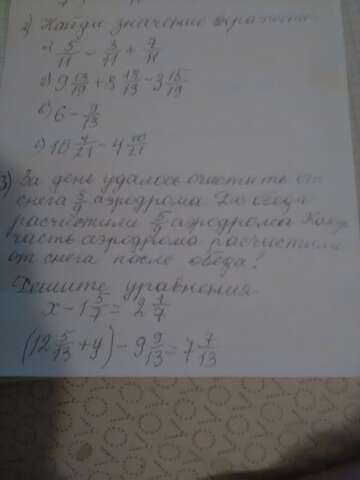 2) Найдите значение
а) 5/11 - 3/11 + 7/11
б) 9 13/19 + 5 13/19 - 3 15/19
в) 6 - 9/13
г) 10 4/21 - 4 10/21
3) За день удалось очистить от
снега 8/9 аэродрома До обеда
расчистили 5/9 аэродрома Какую
часть аэродрома расчистили
от снега после обеда?
Решите уравнения
x - 1 5/7 = 2 1/7
(12 5/13 + y) - 9 9/13 = 7 7/13